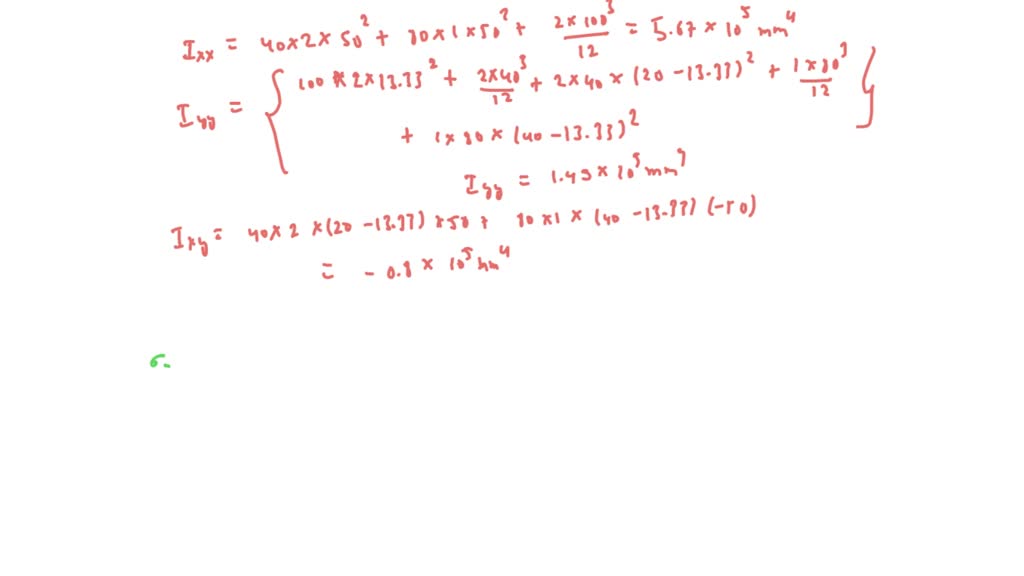 Ixx = 40×2×50² + 80×1×50² + 2×100³/12 = 5.67×10⁵ mm⁴
Iyy = { 100×2×13.33² + 2×40³/12 + 2×40×(20-13.33)² + 1×80³/12
+ 1×80×(40-13.33)² }
Iyy = 1.49×10⁵ mm⁴
Ixy = 40×2×(20-13.33)×50 + 80×1×(40-13.33)(-50)
= -0.8×10⁵ mm⁴